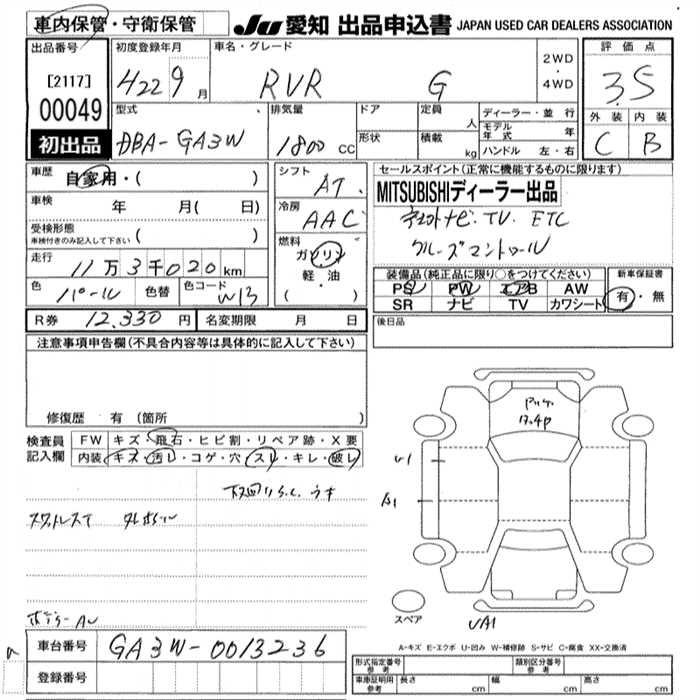 車内保管・守衛保管
JU 愛知 出品申込書 JAPAN USED CAR DEALERS ASSOCIATION
出品番号
[2117]
00049
初出品
初度登録年月
H22 9月
車名・グレード
RVR G
2WD
・
4WD
評価点
3.5
外装 内装
C B
型式
DBA-GA3W
排気量
1800 CC
ドア
形状
定員
人
積載
kg
ディーラー・並行
モデル年式 年
ハンドル 左・右
車歴
自家用・( )
車検 年 月( 日)
受検形態
車検付きのみ記入して下さい ( )
走行
11万3千020km
色 パール 色替 色コード W13
シフト
AT
冷房
AAC
燃料
ガソリン
軽・油
( )
セールスポイント(正常に機能するものに限ります)
MITSUBISHIディーラー出品
TV. ETC
クルーズコントロール
装備品(純正品に限り○をつけてください)
PS PW エアB AW
SR ナビ TV カワシート
新車保証書
有・無
R券 12,330円 名変期限 月 日
後日品
注意事項申告欄(不具合内容等は具体的に記入して下さい)
修復歴 有(箇所 )
検査員記入欄
FW キズ・飛石・ヒビ割・リペア跡・X要
内装 キズ・汚レ・コゲ・穴・スレ・キレ・破レ
U1
A1
スペア
UA1
車台番号 GA3W-0013236
登録番号
A-キズ E-エクボ U-凹み W-補修跡 S-サビ C-腐食 XX-交換済
形式指定番号参考 類別区分番号参考
車庫証明用参考 長さ cm 幅 cm 高さ cm